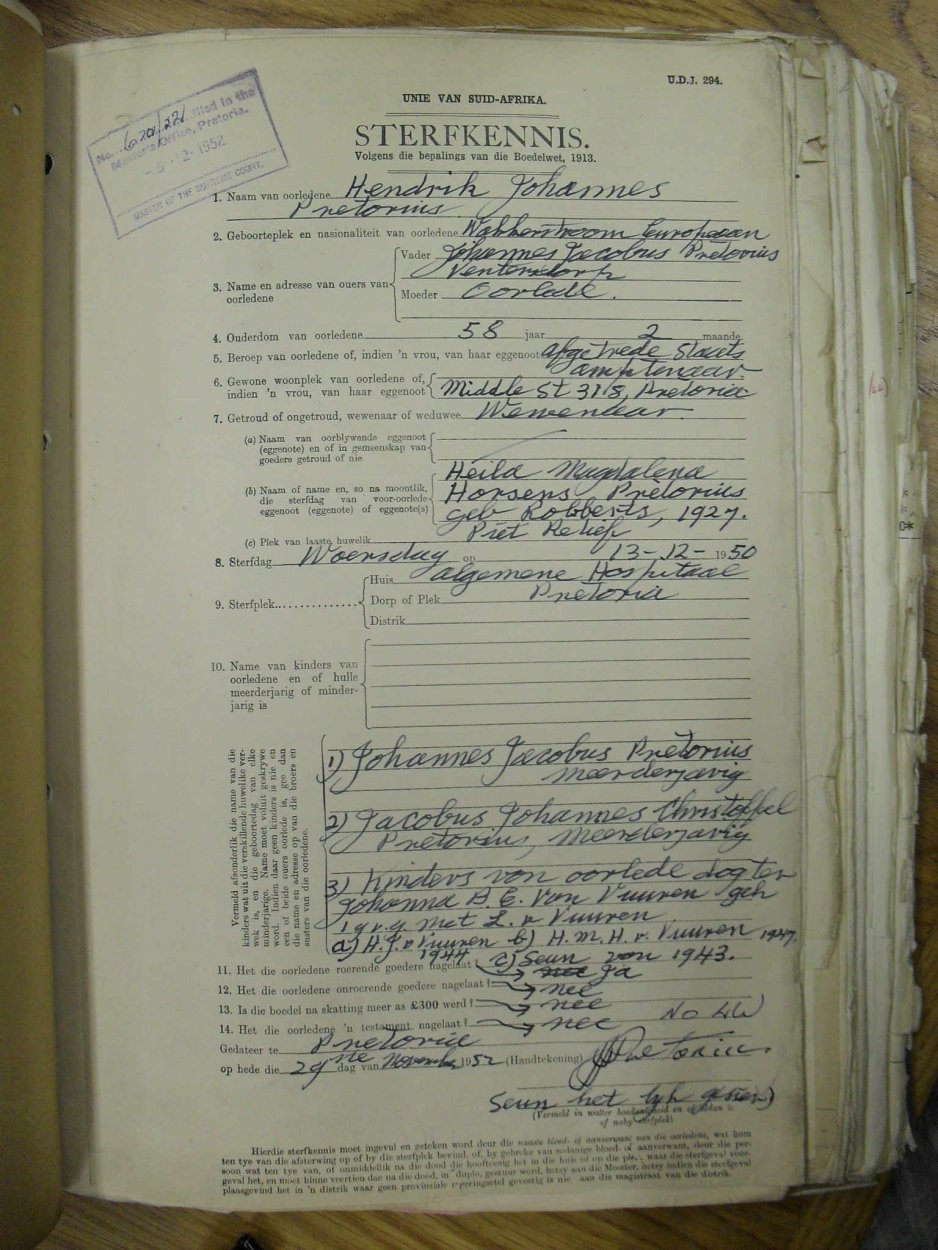 U.D.J. 294.
UNIE VAN SUID-AFRIKA.
STERFKENNIS.
Volgens die bepalings van die Boedelwet, 1913.
No. filed in the
Master's Office, Pretoria.
-5-12-1952
MASTER OF THE SUPREME COURT.
1. Naam van oorledene Hendrik Johannes
Pretorius
2. Geboorteplek en nasionaliteit van oorledene Wakkerstroom European
3. Name en adresse van ouers van oorledene
Vader Johannes Jacobus Pretorius
Ventersdorp
Moeder Oorlede.
4. Ouderdom van oorledene 58 jaar 2 maande
5. Beroep van oorledene of, indien 'n vrou, van haar eggenoot afgetrede Staats
amptenaar
6. Gewone woonplek van oorledene of,
indien 'n vrou, van haar eggenoot Middle St 318, Pretoria
7. Getroud of ongetroud, wewenaar of weduwee Wewenaar
(a) Naam van oorblywende eggenoot
(eggenote) en of in gemeenskap van
goedere getroud of nie
(b) Naam of name en, so na moontlik,
die sterfdag van voor-oorlede
eggenoot (eggenote) of eggenote(s)
Heila Magdalena
Horsens Pretorius
geb Robberts, 1927.
(c) Plek van laaste huwelik Piet Retief
8. Sterfdag Woensdag op 13-12-1950
9. Sterfplek
Huis algemene Hospitaal
Dorp of Plek Pretoria
Distrik
10. Name van kinders van
oorledene en of hulle
meerderjarig of minder-
jarig is
Vermeld afsonderlik die name van die
kinders wat uit die verskillende huwelike ver-
wek is, en die geboortedag van elke
minderjarige. Name moet voluit geskrywe
word. Indien daar geen kinders is nie en
een of beide ouers oorlede is, gee dan
die name en adresse op van die broers en
susters van die oorledene.
1) Johannes Jacobus Pretorius
meerderjarig
2) Jacobus Johannes Christoffel
Pretorius, meerderjarig
3) Kinders van oorlede dogter
Johanna B. E. Van Vuuren geh
i g v. g. met L. v Vuuren
a) H. J. v Vuuren b) H. M. H. v. Vuuren 1947.
1944 c) Seun van 1943.
11. Het die oorledene roerende goedere nagelaat ja
12. Het die oorledene onroerende goedere nagelaat? nee
13. Is die boedel na skatting meer as £300 werd? nee
14. Het die oorledene 'n testament nagelaat? nee
Gedateer te Pretoria
op hede die 29ste dag van November 1952 (Handtekening)
Seun het lyk gesien)
(Vermeld in watter hoedanigheid en of dan is
of naby sterfplek)
Hierdie sterfkennis moet ingevul en geteken word deur die naaste bloed- of aanverwant van die oorledene, wat hom
ten tye van die afsterwing op of by die sterfplek bevind, of, by gebreke van sodanige bloed- of aanverwant, deur die per-
soon wat ten tye van, of onmiddellik na die dood die hooftoesig het in die huis of op die plek, waar die sterfgeval
geval het, en moet binne veertien dae na die dood, in duplo, gestuur word, hetsy aan die Meester, hetsy indien die sterfgeval
plaasgevind het in 'n distrik waar geen provinsiale registrasie gevestig is nie aan die magistraat van die distrik